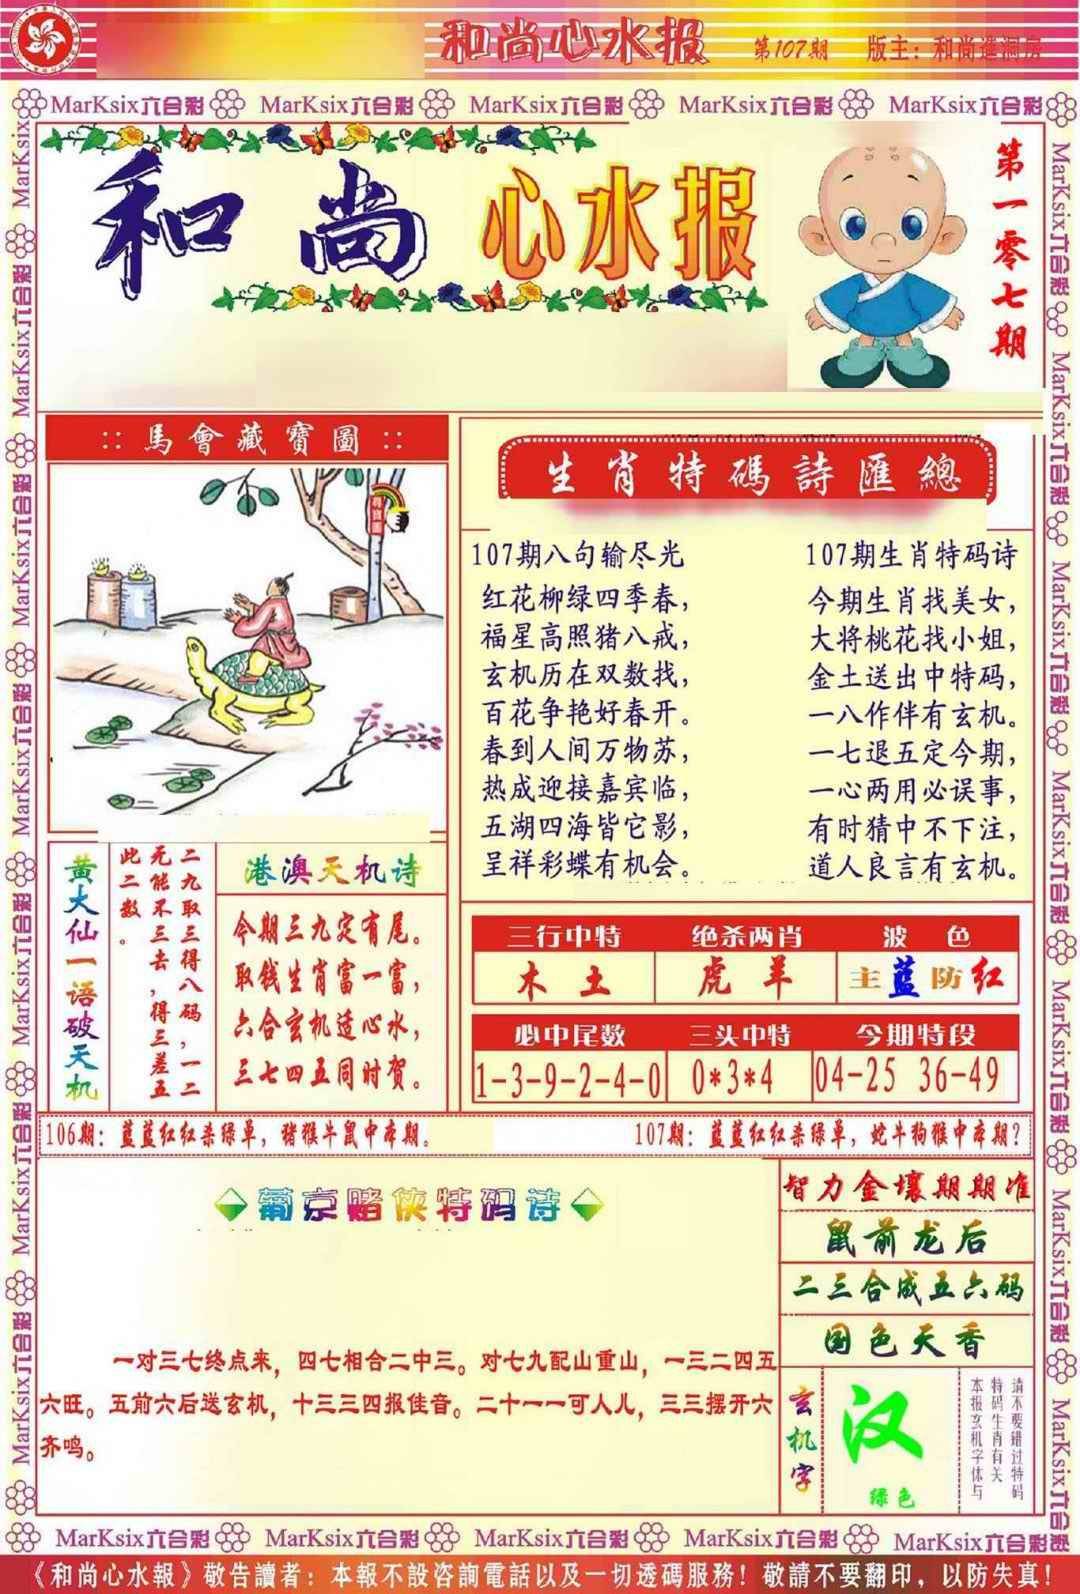 和尚心水报
第107期
版主：和尚進洞房
MarKsix六合彩 MarKsix六合彩 MarKsix六合彩 MarKsix六合彩 MarKsix六合彩
和尚心水报
第一零七期
::馬會藏寶圖::
尋寶圖
生肖特碼詩匯總
107期八句输尽光
红花柳绿四季春，
福星高照猪八戒，
玄机历在双数找，
百花争艳好春开。
春到人间万物苏，
热成迎接嘉宾临，
五湖四海皆它影，
呈祥彩蝶有机会。
107期生肖特码诗
今期生肖找美女，
大将桃花找小姐，
金土送出中特码，
一八作伴有玄机。
一七退五定今期，
一心两用必误事，
有时猜中不下注，
道人良言有玄机。
黄大仙一语破天机
二九取三得八码，一二
无能不三去，得三差五
此二数。
港澳天机诗
今期三九定有尾。
取钱生肖富一富，
六合玄机适心水，
三七四五同时贺。
三行中特 绝杀两肖 波色
木土 虎羊 主蓝防红
必中尾数 三头中特 今期特段
1-3-9-2-4-0 0*3*4 04-25 36-49
106期：蓝蓝红红杀绿单，猪猴牛鼠中本期。
107期：蓝蓝红红杀绿单，蛇牛狗猴中本期？
葡京赌侠特码诗
一对三七终点来，四七相合二中三。对七九配山重山，一三二四五
六旺。五前六后送玄机，十三三四报佳音。二十一一可人儿，三三摆开六
齐鸣。
智力金壤期期准
鼠前龙后
二三合成五六码
国色天香
玄机字
汉
绿色
请不要错过特码
特码生肖有关
本报玄机字体与
MarKsix六合彩 MarKsix六合彩 MarKsix六合彩 MarKsix六合彩 MarKsix六合彩
《和尚心水報》敬告讀者：本報不設咨詢電話以及一切透碼服務！敬請不要翻印，以防失真！